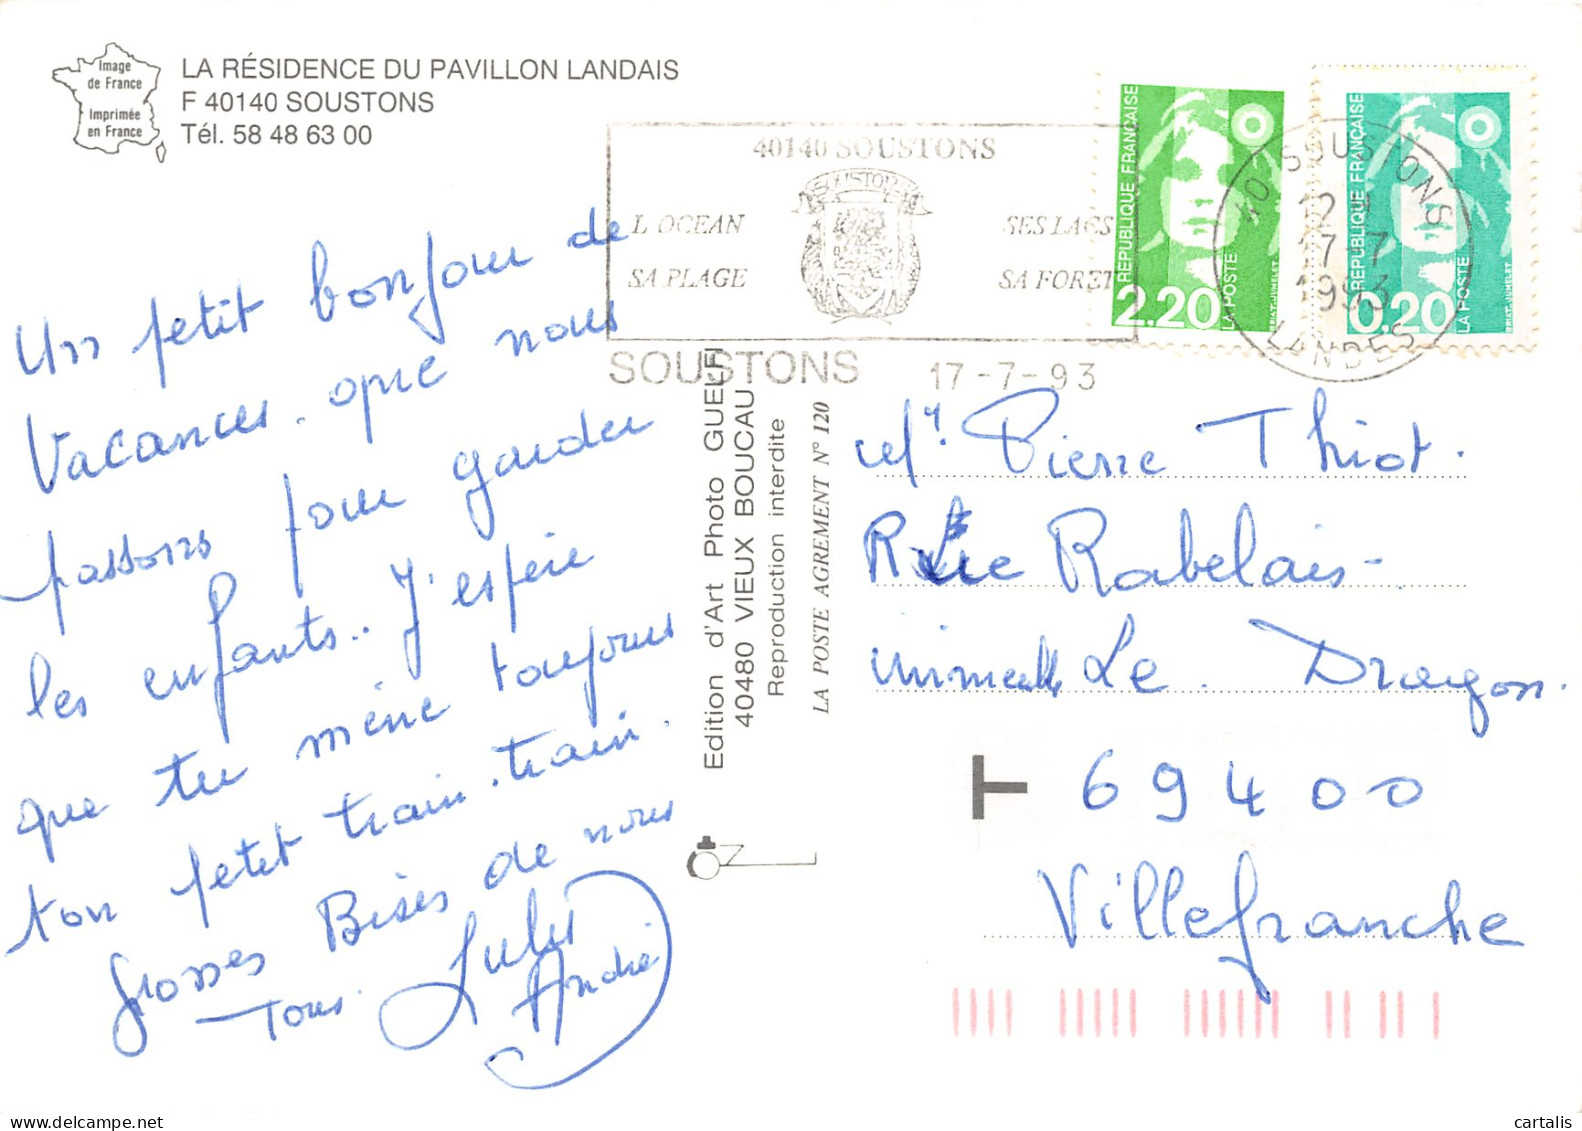 Image
de France
Imprimée
en France
LA RÉSIDENCE DU PAVILLON LANDAIS
F 40140 SOUSTONS
Tél. 58 48 63 00
40140 SOUSTONS
SOUSTONS
L'OCEAN
SES LACS
SA PLAGE
SA FORET
SOUSTONS
17-7-93
RÉPUBLIQUE FRANÇAISE
2.20
LA POSTE
BRIAT-JUMELET
RÉPUBLIQUE FRANÇAISE
0.20
LA POSTE
BRIAT-JUMELET
40 SOUSTONS
12
17-7
1993
LANDES
Un petit bonjour de
Vacances. que nous
passons pour garder
les enfants.. J'espère
que tu mène toujours
ton petit train.train.
Grosses Bises de nous
Tous.
André
Edition d'Art Photo GUELFI
40480 VIEUX BOUCAU
Reproduction interdite
LA POSTE AGREMENT N° 120
Mr. Pierre Thiot.
Rue Rabelais-
immeuble Le Dragon.
T 69400
Villefranche
cartalis